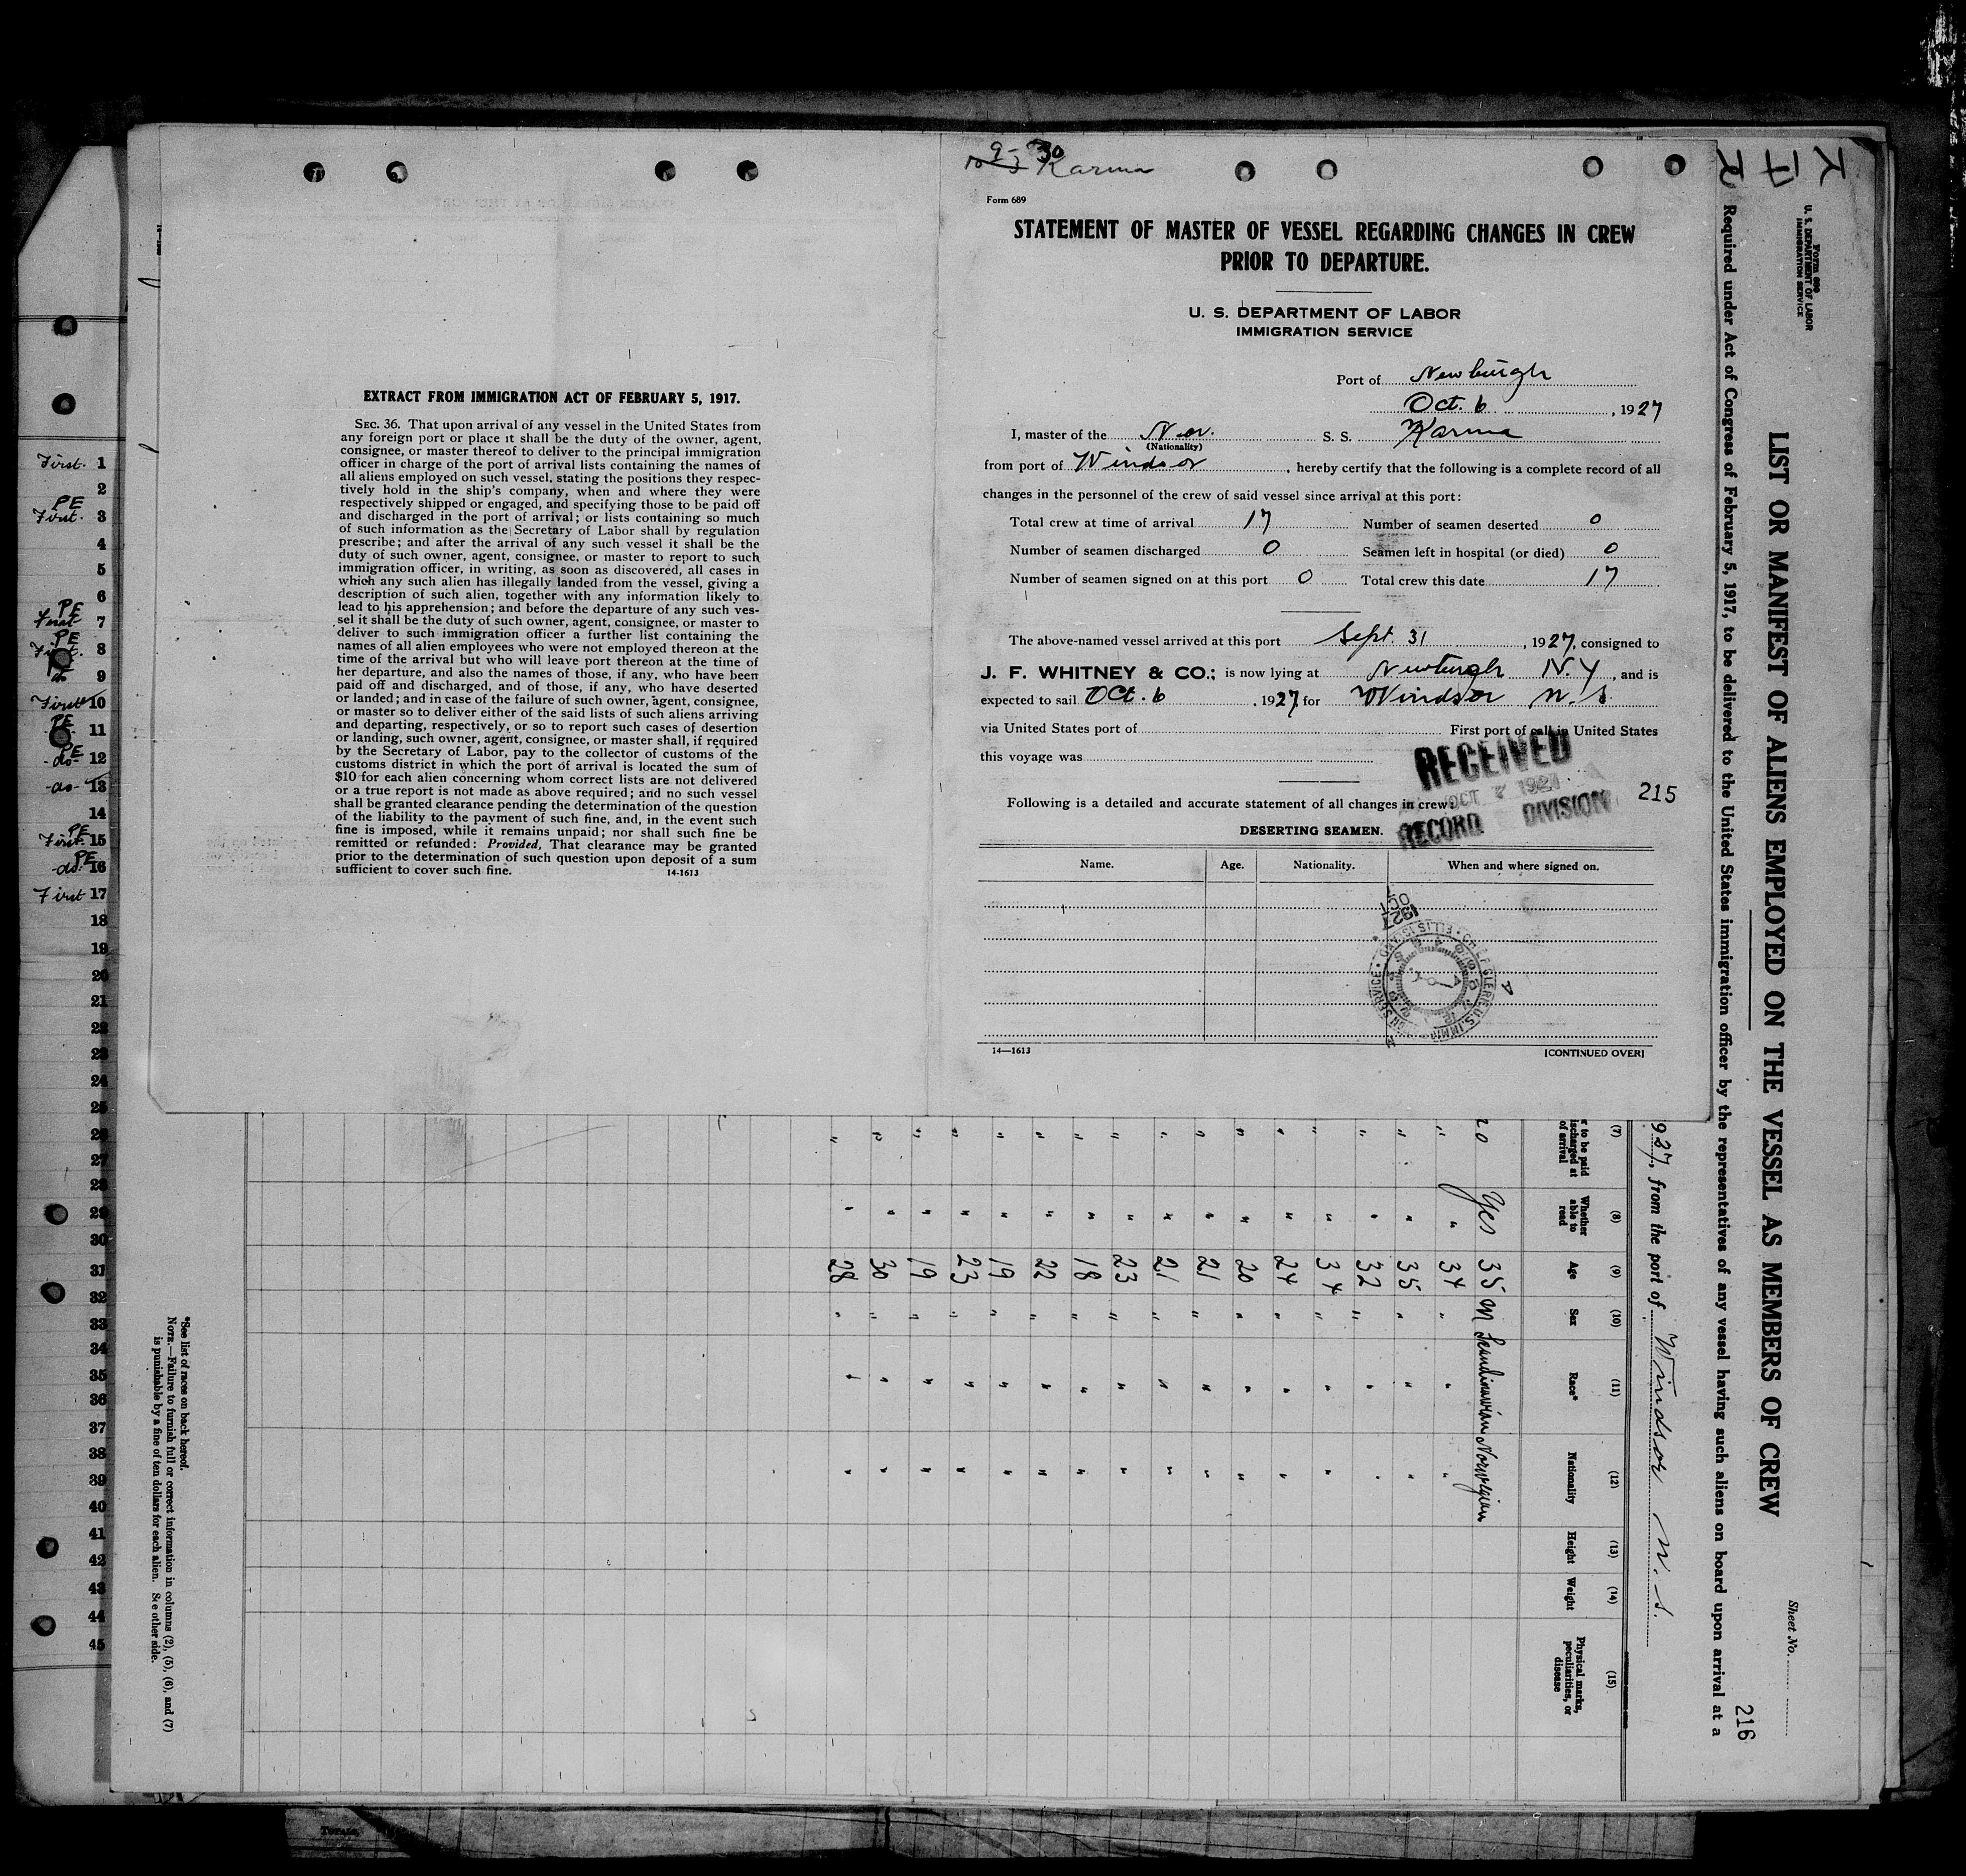 9-30
Karma
Form 689
STATEMENT OF MASTER OF VESSEL REGARDING CHANGES IN CREW
PRIOR TO DEPARTURE.
U. S. DEPARTMENT OF LABOR
IMMIGRATION SERVICE
Port of Newburgh
Oct. 6, 1927
I, master of the Nor. S. S. Karma
(Nationality)
from port of Windsor, hereby certify that the following is a complete record of all
changes in the personnel of the crew of said vessel since arrival at this port:
Total crew at time of arrival 17 Number of seamen deserted 0
Number of seamen discharged 0 Seamen left in hospital (or died) 0
Number of seamen signed on at this port 0 Total crew this date 17
The above-named vessel arrived at this port Sept. 31, 1927, consigned to
J. F. WHITNEY & CO.; is now lying at Newburgh N.Y, and is
expected to sail Oct. 6. 1927 for Windsor N.S.
via United States port of First port of call in United States
this voyage was
RECEIVED
OCT 7 1927
RECORD DIVISION
215
Following is a detailed and accurate statement of all changes in crew:
DESERTING SEAMEN.
Name. Age. Nationality. When and where signed on.
1927
OCT
ELLIS ISLAND
14—1613 [CONTINUED OVER]
EXTRACT FROM IMMIGRATION ACT OF FEBRUARY 5, 1917.
SEC. 36. That upon arrival of any vessel in the United States from
any foreign port or place it shall be the duty of the owner, agent,
consignee, or master thereof to deliver to the principal immigration
officer in charge of the port of arrival lists containing the names of
all aliens employed on such vessel, stating the positions they respec-
tively hold in the ship's company, when and where they were
respectively shipped or engaged, and specifying those to be paid off
and discharged in the port of arrival; or lists containing so much
of such information as the Secretary of Labor shall by regulation
prescribe; and after the arrival of any such vessel it shall be the
duty of such owner, agent, consignee, or master to report to such
immigration officer, in writing, as soon as discovered, all cases in
which any such alien has illegally landed from the vessel, giving a
description of such alien, together with any information likely to
lead to his apprehension; and before the departure of any such ves-
sel it shall be the duty of such owner, agent, consignee, or master to
deliver to such immigration officer a further list containing the
names of all alien employees who were not employed thereon at the
time of the arrival but who will leave port thereon at the time of
her departure, and also the names of those, if any, who have been
paid off and discharged, and of those, if any, who have deserted
or landed; and in case of the failure of such owner, agent, consignee,
or master so to deliver either of the said lists of such aliens arriving
and departing, respectively, or so to report such cases of desertion
or landing, such owner, agent, consignee, or master shall, if required
by the Secretary of Labor, pay to the collector of customs of the
customs district in which the port of arrival is located the sum of
$10 for each alien concerning whom correct lists are not delivered
or a true report is not made as above required; and no such vessel
shall be granted clearance pending the determination of the question
of the liability to the payment of such fine, and, in the event such
fine is imposed, while it remains unpaid; nor shall such fine be
remitted or refunded: Provided, That clearance may be granted
prior to the determination of such question upon deposit of a sum
sufficient to cover such fine. 14-1613
First. 1
2
PE
First. 3
4
5
6
PE
First 7
PE
8
do 9
First 10
PE
11
PE
-do- 12
-do- 13
14
PE
First. 15
PE
-do. 16
First 17
18
19
20
21
22
23
24
25
26
27
28
29
30
31
32
33
34
35
36
37
38
39
40
41
42
43
44
45
Form 680
U. S. DEPARTMENT OF LABOR
IMMIGRATION SERVICE
LIST OR MANIFEST OF ALIENS EMPLOYED ON THE VESSEL AS MEMBERS OF CREW
Sheet No.
216
Required under Act of Congress of February 5, 1917, to be delivered to the United States immigration officer by the representatives of any vessel having such aliens on board upon arrival at a
927, from the port of Windsor N.S.
(7) (8) (9) (10) (11) (12) (13) (14) (15)
r to be paid
ischarged at
of arrival
Whether
able to
read
Age
Sex
Race*
Nationality
Height
Weight
Physical marks,
peculiarities, or
disease
20 Yes 35 M Scandinavian Norwegian
" " 34 " " "
" " 35 " " "
" " 32 " " "
" " 34 " " "
" " 24 " " "
" " 20 " " "
" " 21 " " "
" " 21 " " "
" " 23 " " "
" " 18 " " "
" " 22 " " "
" " 19 " " "
" " 23 " " "
" " 19 " " "
" " 30 " " "
" " 28 " " "
*See list of races on back hereof.
NOTE.—Failure to furnish full or correct information in columns (2), (5), (6), and (7)
is punishable by a fine of ten dollars for each alien. See other side.
TOTALS